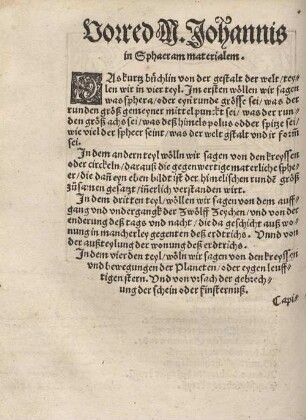 Vorred M. Johannis
in Sphaeram materialem.
DAs kurtz büchlin von der gestalt der welt / tey-
len wir in vier teyl. Im ersten wöllen wir sagen
was sphera / oder eyn runde grösse sei / was der
runden größ gemeyner mittel punckt sei / was der run-
den größ achs sei / was deß himels polus odder spitze sei /
wie viel der spheer seint / was der welt gstalt vnd ir form
sei.
In dem andern teyl wölln wir sagen von den kreyssen
oder circkeln / darauß die gegenwertige materliche sphe-
re / die dañ eyn eben bildt ist der himelischen runde größ
züsamen gesatzt / iñerlich verstanden wirt.
In dem dritten teyl / wöllen wir sagen von dem auff-
gang vnd vndergangk der Zwölff Zeychen / vnd von der
enderung deß tags vnd nacht / die da geschicht auß wo-
nung in mancherley gegenten deß erdtrichs. Vnnd von
der außteylung der wonung deß erdtrichs.
In dem vierden teyl / wöln wir sagen von den kreyssen
vnd bewegungen der Planeten / oder eygen leuff-
tigen stern. Vnd von vrsach der gebrech-
ung der schein oder finsternuß.
Capi-